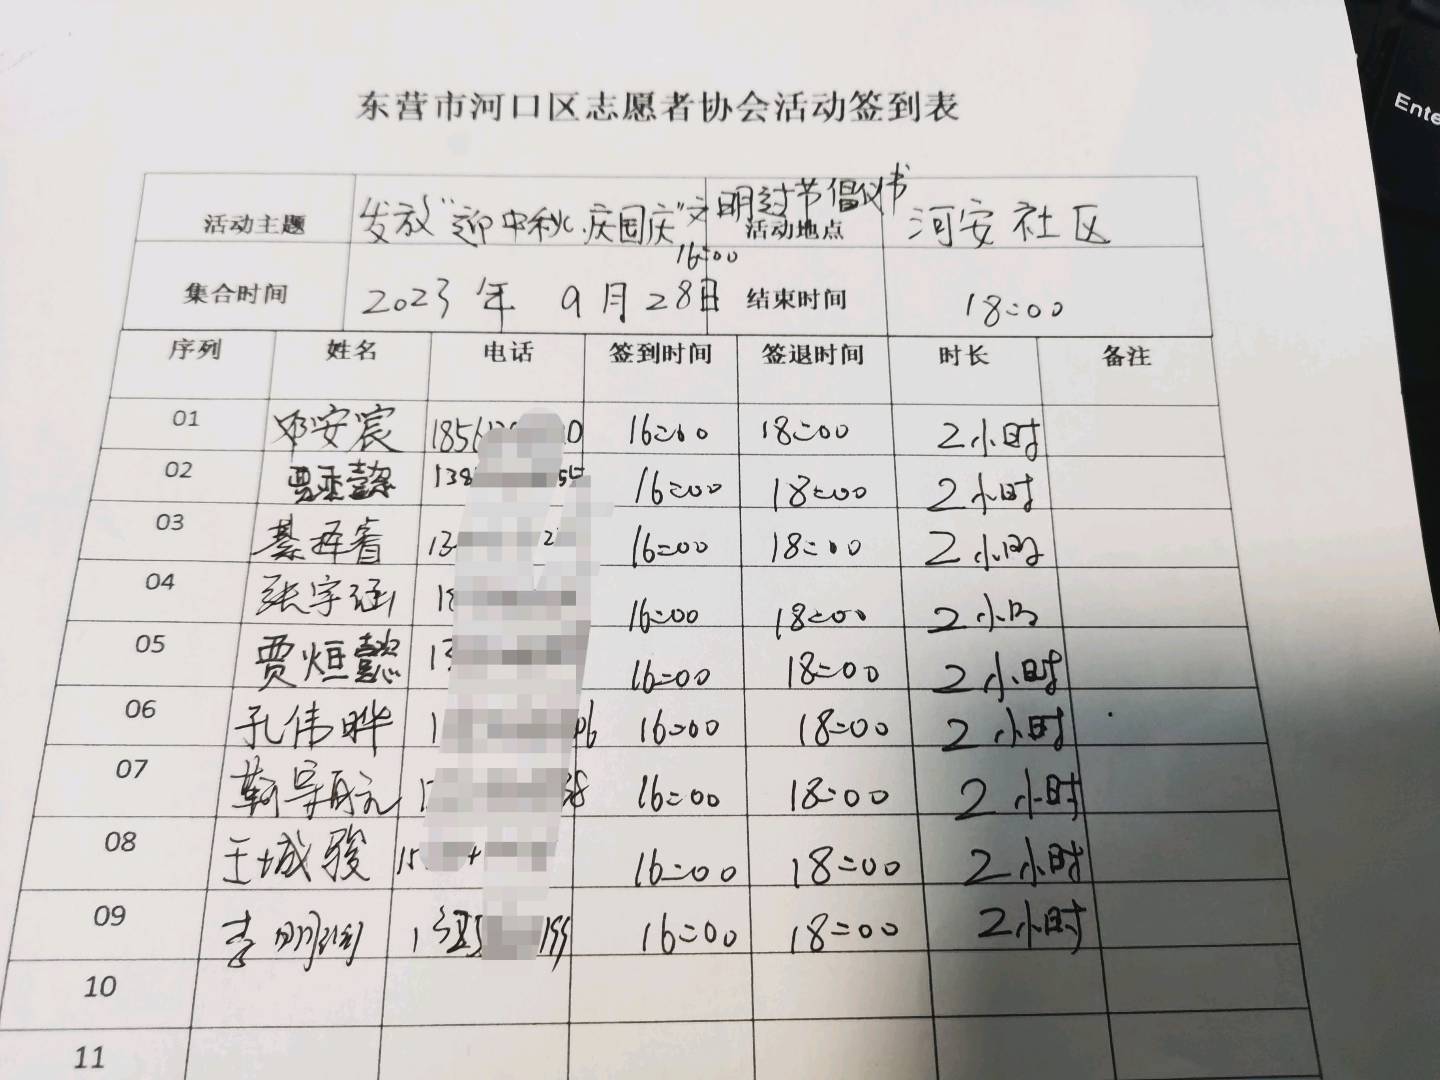 Ente
东营市河口区志愿者协会活动签到表
活动主题 发放“迎中秋、庆国庆”文明过节倡议书 活动地点 河安社区
集合时间 2023年 9月28日 16:00 结束时间 18:00
序列 姓名 电话 签到时间 签退时间 时长 备注
01 邓安宸 185 0 16:00 18:00 2小时
02 138 55 16:00 18:00 2小时
03 綦 睿 13 2 16:00 18:00 2小时
04 张宇涵 18 16:00 18:00 2小时
05 贾烜懿 13 16:00 18:00 2小时
06 孔伟晔 1 06 16:00 18:00 2小时
07 靳导航 1 38 16:00 18:00 2小时
08 王城骏 15 16:00 18:00 2小时
09 李明 1 199 16:00 18:00 2小时
10
11